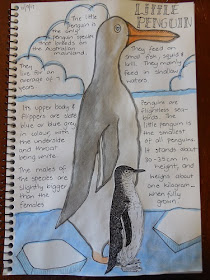 LITTLE
PENGUIN
The little
Penguin is
the only
Penguin species
that breeds on
the Australian
mainland.
They
live for an
average of 7
years
They feed on
small fish, squid &
krill. They mainly
feed in shallow
waters
Its upper body &
flippers are slate
blue or blue grey
in colour, with
the underside
and throat
being white.
The males of
the species are
slightly bigger
than the
females
Penguins are
flightless sea-
birds. The
little penguin is
the smallest
of all penguins.
It stands about
30-35cm in
height, and
weighs about
one kilogram
when fully
grown